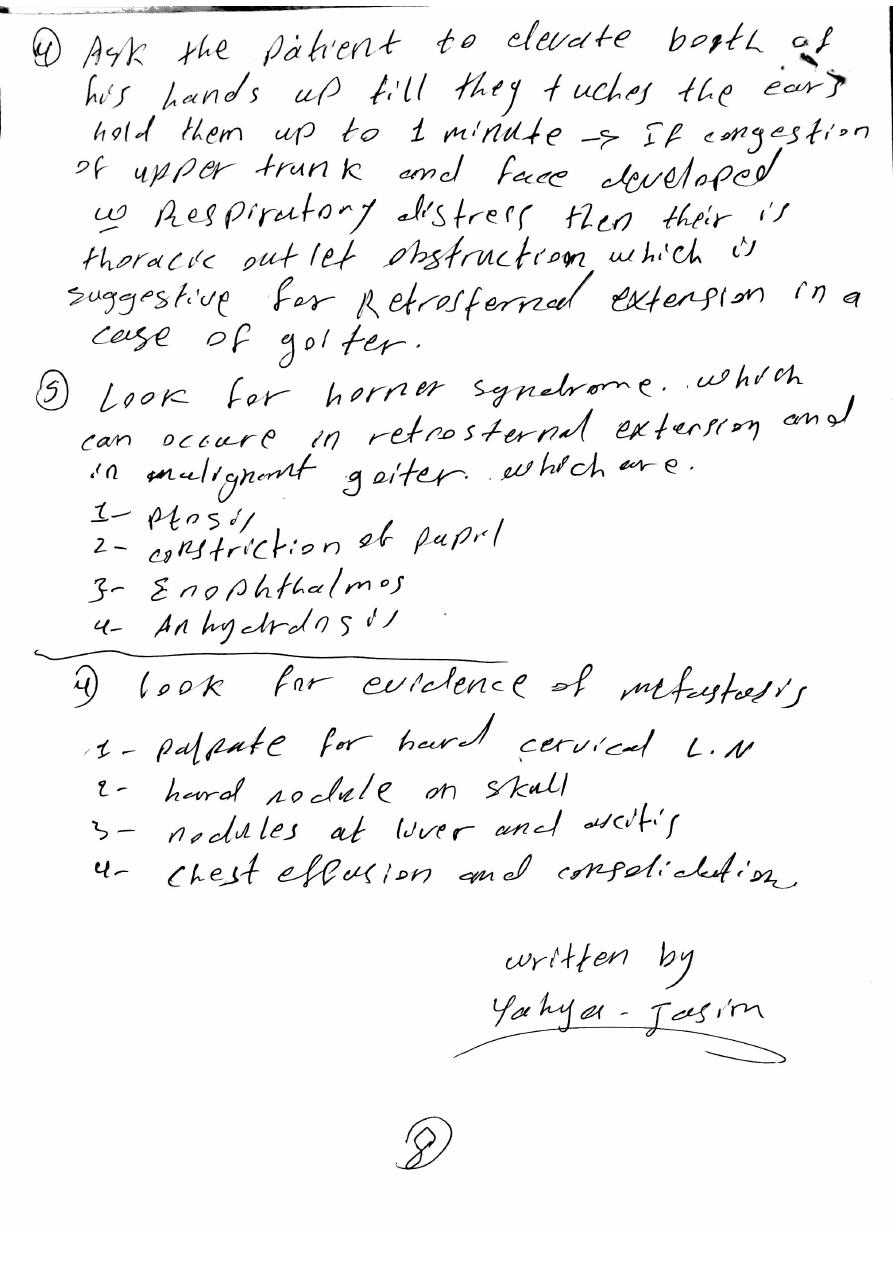 ④ Ask the patient to elevate booth of
his hands up till they tuches the ears
hold them up to 1 minute → If congestion
of upper trunk and face developed
w Respiratory distress then their is
thoracic outlet obstruction which is
suggestive for Retrosternal extension in a
case of goiter.
⑤ Look for horner syndrome. which
can occure in retrosternal extension and
in malignant goiter. which are.
1- ptosis
2- constriction of pupil
3- Enophthalmos
4- Anhydrosis
④ look for evidence of metastasis
1- palpate for hard cervical L.N
2- hard nodule on skull
3- nodules at liver and ascitis
4- chest effusion and consolidation
written by
Yahya - Jasim
8